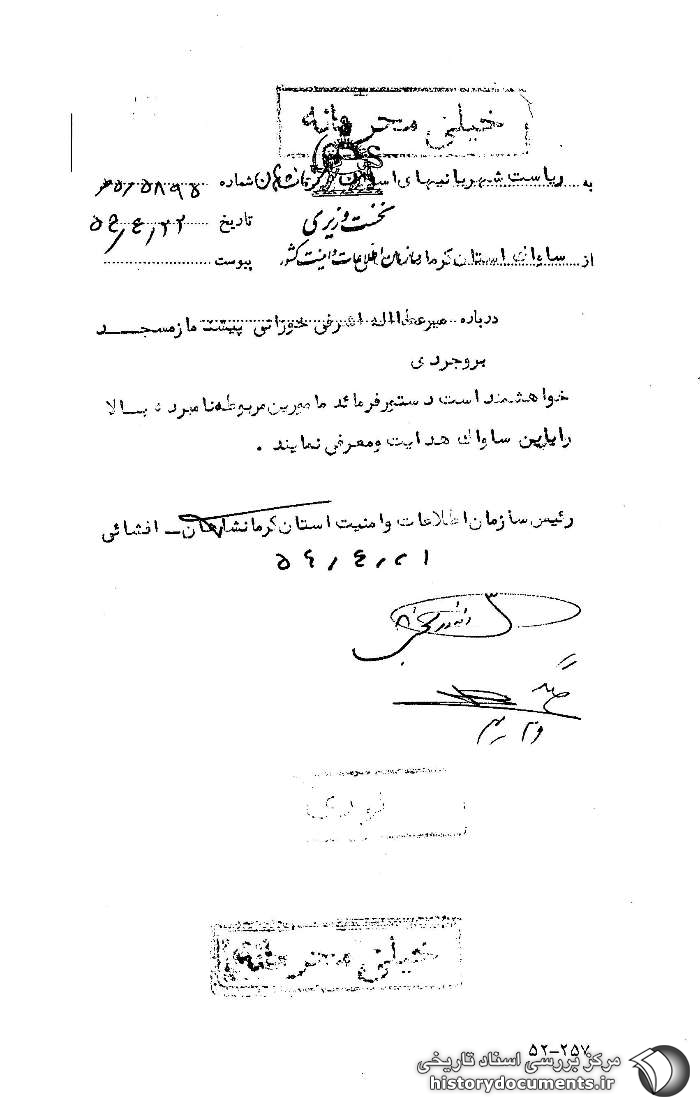 خیلی محرمانه
به ریاست شهربانیهای استان کرمانشاهان شماره
نخست وزیری
تاریخ ۵۴/۴/۲۲
از ساواک استان کرما سازمان اطلاعات و امنیت کشور پیوست
درباره میرعطاالله اشرفی خوزانی پیشنماز مسجد
بروجردی
خواهشمند است دستور فرمائد مامورین مربوطه نامبرده بالا
را باین ساواک هدایت و معرفی نمایند .
رئیس سازمان اطلاعات و امنیت استان کرمانشاهان ــ افشائی
فوری
خیلی محرمانه
۵۲-۲۵۷
مرکز بررسی اسناد تاریخی
historydocuments.ir